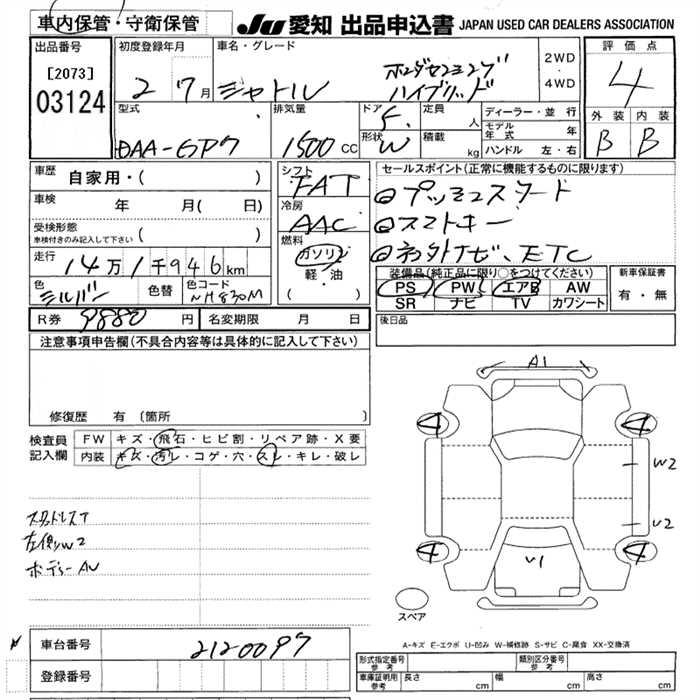 車内保管・守衛保管
JU 愛知 出品申込書 JAPAN USED CAR DEALERS ASSOCIATION
出品番号
[2073]
03124
初度登録年月
2 7月
車名・グレード
シャトル
ホンダセンシング
ハイブリッド
2WD
・
4WD
評価点
4
外装 内装
B B
型式
DAA-GP7
排気量
1500 CC
ドア
5
形状
W
定員
人
積載
kg
ディーラー・並行
モデル年式 年
ハンドル 左・右
車歴
自家用・( )
車検
年 月( 日)
受検形態
車検付きのみ記入して下さい ( )
走行
14万1千946km
色
シルバー
色替
色コード
NH830M
シフト
FAT
冷房
AAC
燃料
ガソリン
軽・油
( )
セールスポイント(正常に機能するものに限ります)
◎プッシュスタート
◎スマートキー
◎社外ナビ、ETC
装備品(純正品に限り○をつけてください)
PS PW エアB AW
SR ナビ TV カワシート
新車保証書
有・無
R券 9880 円 名変期限 月 日
後日品
注意事項申告欄(不具合内容等は具体的に記入して下さい)
修復歴 有〔箇所 〕
検査員記入欄
FW キズ・飛石・ヒビ割・リペア跡・X要
内装 キズ・汚レ・コゲ・穴・スレ・キレ・破レ
スタッドレスT
左側W2
ボディーAU
A1
4
4
W2
W2
4
4
V1
スペア
A-キズ E-エクボ U-凹み W-補修跡 S-サビ C-腐食 XX-交換済
車台番号 2120097
登録番号
形式指定番号 参考
類別区分番号 参考
車庫証明用 参考 長さ cm 幅 cm 高さ cm